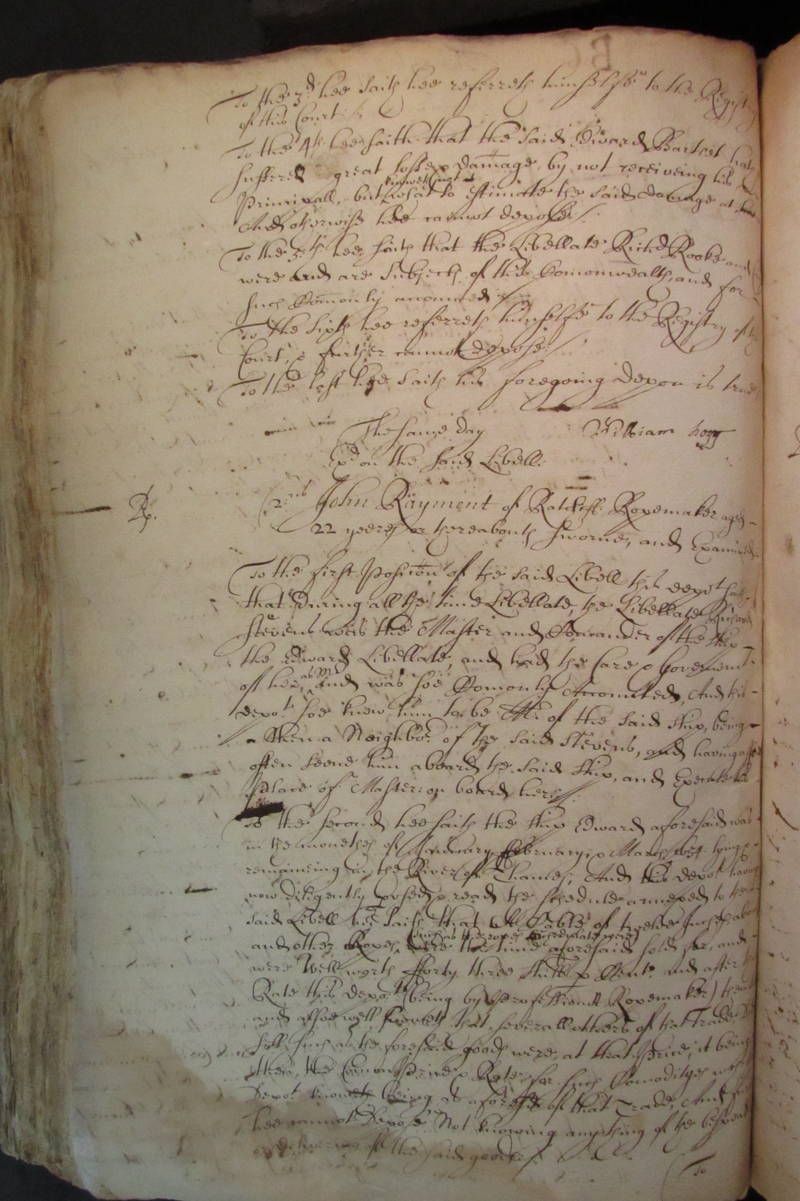 To the 3d hee saith hee referreth himselfe to the Registry
of this Court
To the 4th hee saith that the said Edward Bartlet hath
suffered great losse & damage by not receiveing his
Principall, but what to estimate the said damage at
And otherwise hee cannot depose
To the 5th hee saith that the Libellate Richd Rooke and
were and are Subjects of this Comonwealth, and for
such Comonly accounted
To the Sixth hee referreth himselfe to the Registry of this
Court, & further cannot depose
To the last hee saith his foregoing depon is true
The same day William Hogg
Exd on the said Libell.
Rp. 2us John Rayment of Ratcliffe Ropemaker aged
22 yeeres or thereabouts sworne, and Examined
To the first Position of the said Libell this dept saith
that during all the time Libellate, the Libellate Richard
Stevens was the Master and Comander of the Ship
the Edward Libellate, and had the Care & Goverment
of her, and was soe Comonly Accounted, And this
depot soe knew him to be Mr of the said Ship, being
then a Neighbor of the said Stevens, and having
often seene him aboard the said Ship, and Execute the
place of Master on board her
To the second hee saith the ship Edward aforesaid was
in the moneths of January, ffebruary, & March lying &
remaineing in the River of Thames, And this depot having
now diligently perused & read the schedule annexed to the
said Libell hee saith that Cables of twelve Inches
and other Ropes, were the time aforesaid sold for, and
were well worth fforty three shill p Cent. And after
Rate this depot (being by profession a Ropemaker)
and alsoe well knoweth that severall others of that Trade
sell such as the foresaid goods were, at that price, it being
then, the Comon Price & Rate for such Comodityes
Depot knoweth being as aforesd of that Trade, And
hee cannot depose Not knowing any thing of the
the said goods
To